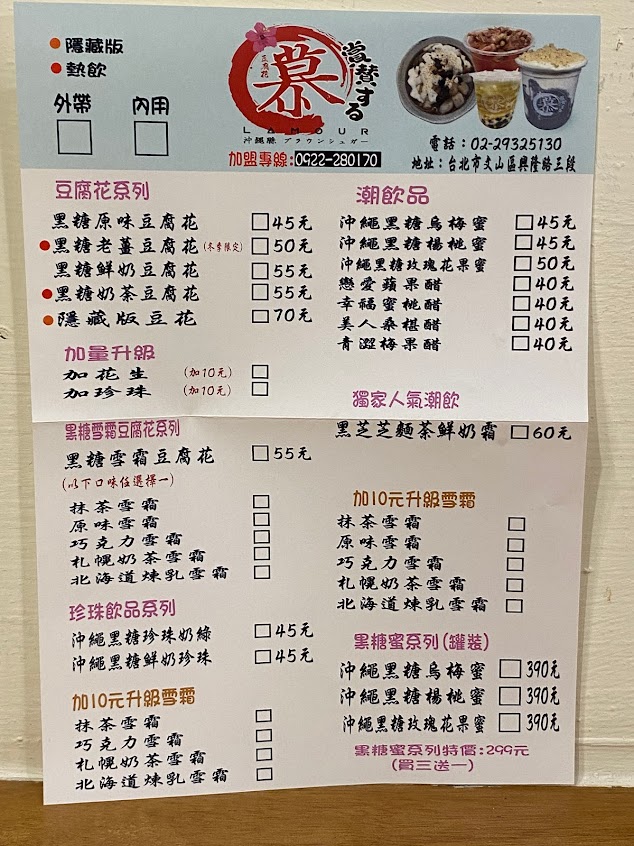 隱藏版
熱飲
外帶 內用
豆腐花
慕
賞替する
LAMOUR
沖繩縣 ブラウンシュガー
加盟專線:0922-280170
電話：02-29325130
地址：台北市文山區興隆路三段
豆腐花系列
黑糖原味豆腐花 45元
黑糖老薑豆腐花(冬季限定) 50元
黑糖鮮奶豆腐花 55元
黑糖奶茶豆腐花 55元
隱藏版豆花 70元
加量升級
加花生 (加10元)
加珍珠 (加10元)
黑糖雪霜豆腐花系列
黑糖雪霜豆腐花 55元
(以下口味任選擇一)
抹茶雪霜
原味雪霜
巧克力雪霜
札幌奶茶雪霜
北海道煉乳雪霜
珍珠飲品系列
沖繩黑糖珍珠奶綠 45元
沖繩黑糖鮮奶珍珠 45元
加10元升級雪霜
抹茶雪霜
巧克力雪霜
札幌奶茶雪霜
北海道煉乳雪霜
潮飲品
沖繩黑糖烏梅蜜 45元
沖繩黑糖楊桃蜜 45元
沖繩黑糖玫瑰花果蜜 50元
戀愛蘋果醋 40元
幸福蜜桃醋 40元
美人桑椹醋 40元
青澀梅果醋 40元
獨家人氣潮飲
黑芝芝麵茶鮮奶霜 60元
加10元升級雪霜
抹茶雪霜
原味雪霜
巧克力雪霜
札幌奶茶雪霜
北海道煉乳雪霜
黑糖蜜系列(罐裝)
沖繩黑糖烏梅蜜 390元
沖繩黑糖楊桃蜜 390元
沖繩黑糖玫瑰花果蜜 390元
黑糖蜜系列特價:299元
(買三送一)